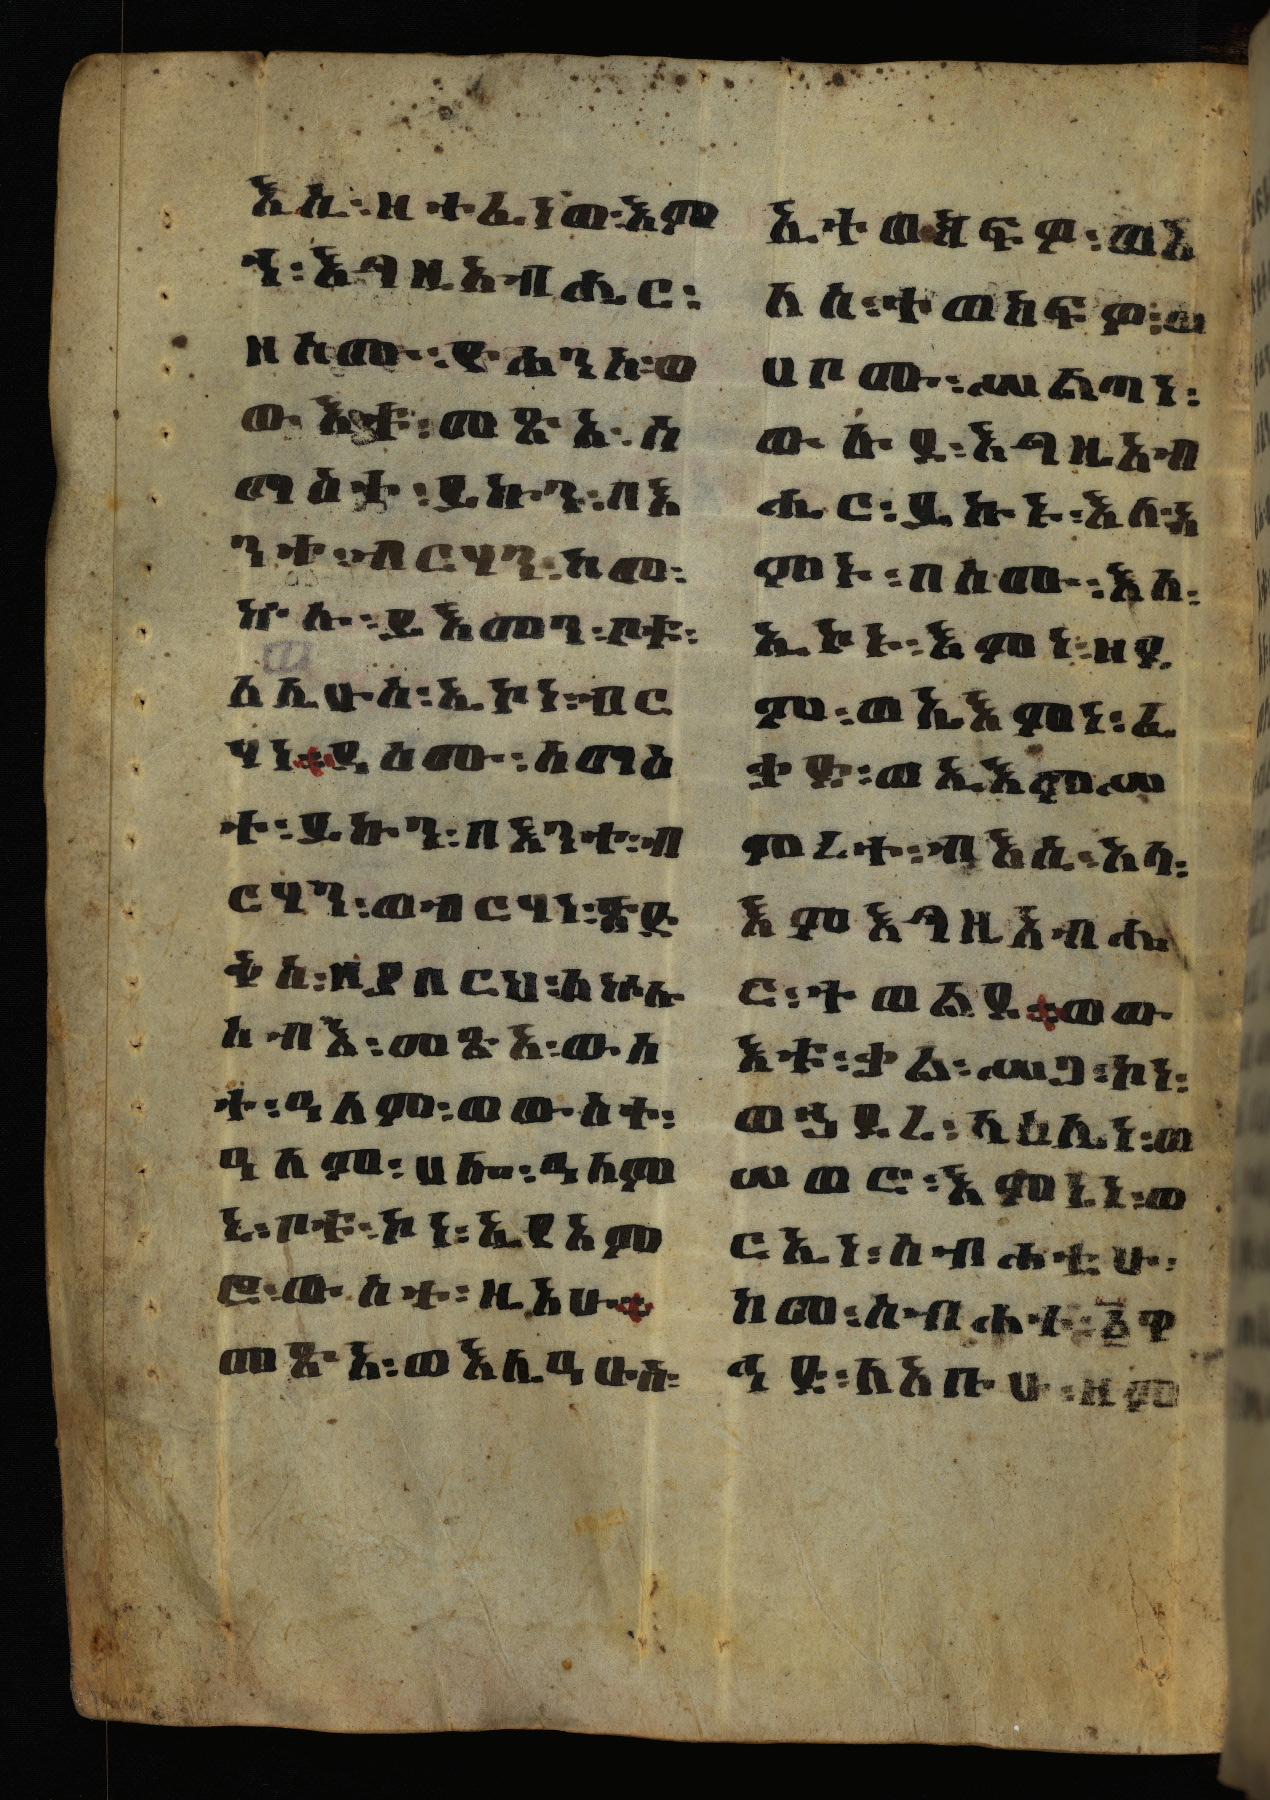 እሲ፡ዘተፈነወ፡እም
ኀ፡እግዚእብሔር፡
ዘስሙ፡ዮሐንስ፡ወ
ውእቱ፡መጽአ፡ለ
ማዕተ፡ይኩን፡በእ
ንተ፡ብርሃን፡ከመ፡
ኵሉ፡ይእመን፡ቦቱ፡
ለሊሁስ፡ኢኮነ፡ብር
ሃነ፨ዳዕሙ፡ሰማዕ
ተ፡ይኩን፡በእንተ፡ብ
ርሃን፡ወብርሃነ፡ጽድ
ቅሰ፡ዘያበርህ፡ለኵሉ
ሰብእ፡መጽአ፡ውስ
ተ፡ዓለም፡ወውስተ፡
ዓለም፡ሀሎ፡ዓለም
ኒ፡ቦቱ፡ኮነ፡ኢያእም
ሮ፡ውስተ፡ዚአሁ፨
መጽአ፡ወእሊዓሁሰ፡
ኢተወክፍዎ፡ወእ
ለሰ፡ተወክፍዎ፡ወ
ሀቦሙ፡ሥልጣነ፡
ውሉደ፡እግዚእብ
ሔር፡ይኩኑ፡እለ፡እ
ምኑ፡በስሙ፡እለ፡
ኢኮኑ፡እምነ፡ዘይ
ም፡ወኢእምነ፡ፈ
ቃድ፡ወኢእምሥ
ምረተ፡ብእሲ፡እላ፡
እምእግዚእብሔ
ር፡ተወልዱ፨ወው
እቱ፡ቃል፡ሥጋ፡ኮነ፡
ወኃደረ፡ላዕሌነ፡ወ
ሠወሮ፡እምኔነ፡ወ
ርኢነ፡ስብሐቲሁ፡
ከመ፡ስብሐተ፡፩ዋ
ሓዱ፡ለእቡሁ፡ዘም